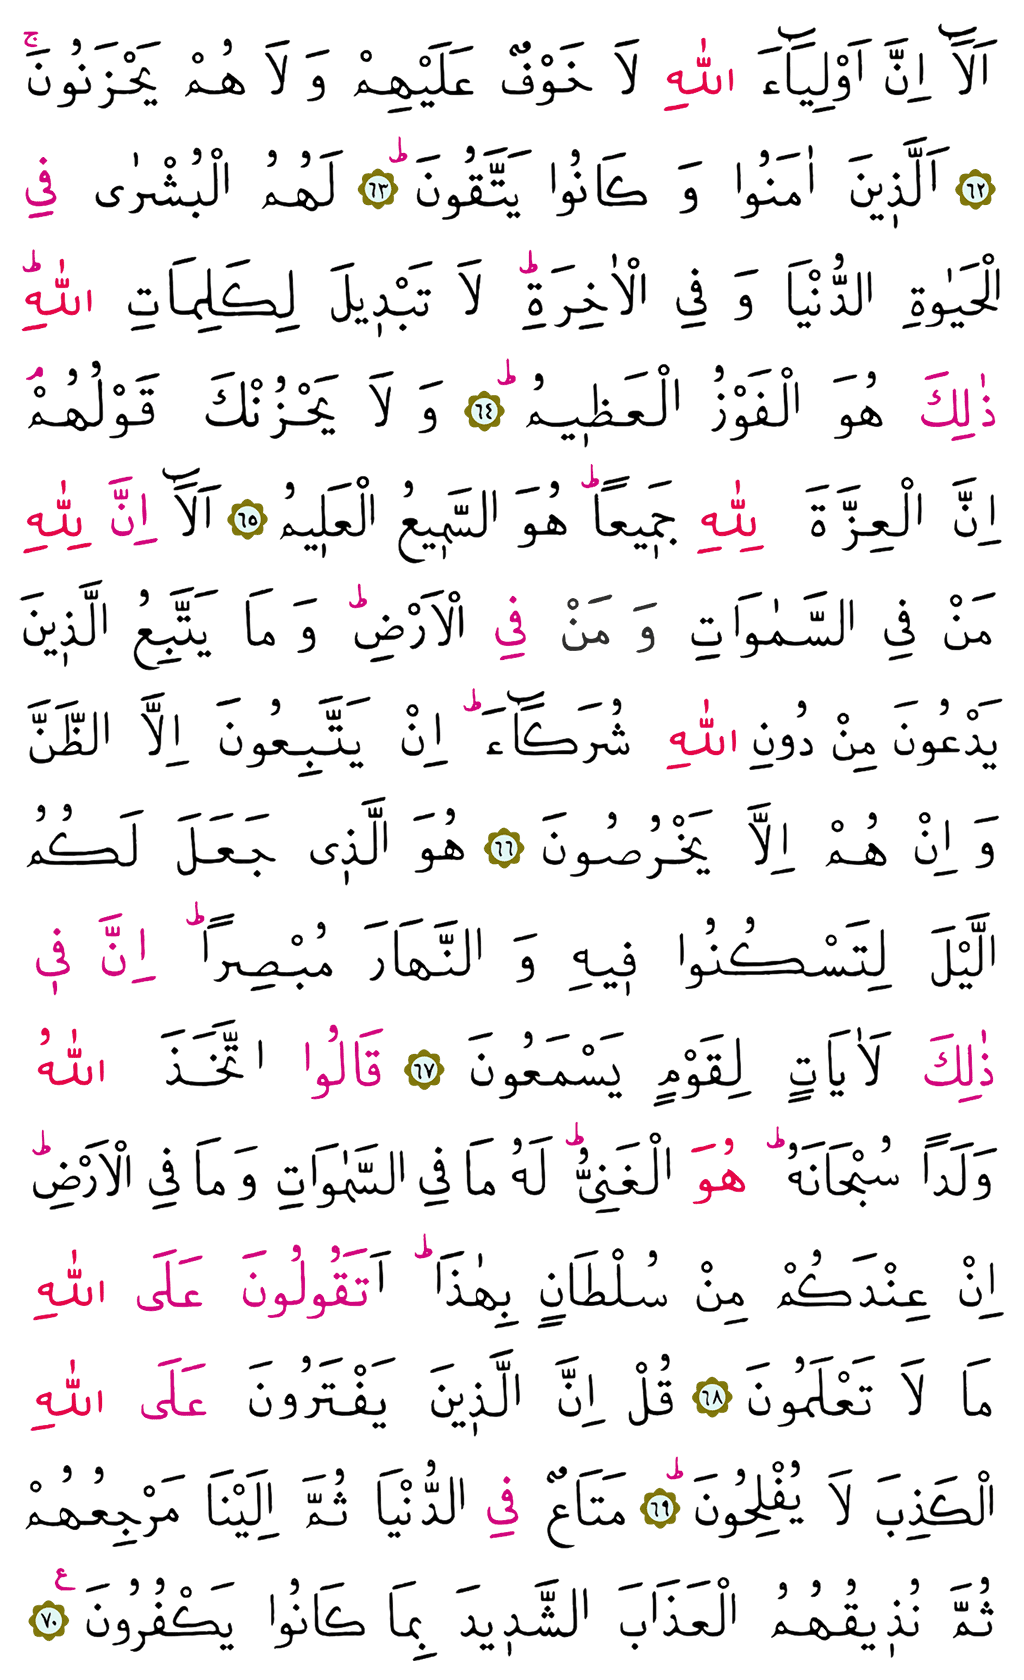 اَلَٓا اِنَّ اَوْلِيَٓاءَ اللّٰهِ لَا خَوْفٌ عَلَيْهِمْ وَ لَا هُمْ يَحْزَنُونَۚ
﴿٦٢﴾ اَلَّذ۪ينَ اٰمَنُوا وَ كَانُوا يَتَّقُونَۜ ﴿٦٣﴾ لَهُمُ الْبُشْرٰى فِي
الْحَيٰوةِ الدُّنْيَا وَ فِي الْاٰخِرَةِۜ لَا تَبْد۪يلَ لِكَلِمَاتِ اللّٰهِۜ
ذٰلِكَ هُوَ الْفَوْزُ الْعَظ۪يمُۜ ﴿٦٤﴾ وَ لَا يَحْزُنْكَ قَوْلُهُمْۢ
اِنَّ الْعِزَّةَ لِلّٰهِ جَم۪يعاًۜ هُوَ السَّم۪يعُ الْعَل۪يمُ ﴿٦٥﴾ اَلَٓا اِنَّ لِلّٰهِ
مَنْ فِي السَّمٰوَاتِ وَ مَنْ فِي الْاَرْضِۜ وَ مَا يَتَّبِعُ الَّذ۪ينَ
يَدْعُونَ مِنْ دُونِ اللّٰهِ شُرَكَٓاءَۜ اِنْ يَتَّبِعُونَ اِلَّا الظَّنَّ
وَ اِنْ هُمْ اِلَّا يَخْرُصُونَ ﴿٦٦﴾ هُوَ الَّذ۪ى جَعَلَ لَكُمُ
الَّيْلَ لِتَسْكُنُوا ف۪يهِ وَ النَّهَارَ مُبْصِراًۜ اِنَّ ف۪ي
ذٰلِكَ لَاٰيَاتٍ لِقَوْمٍ يَسْمَعُونَ ﴿٦٧﴾ قَالُوا اتَّخَذَ اللّٰهُ
وَلَداً سُبْحَانَهُۜ هُوَ الْغَنِيُّۜ لَهُ مَا فِي السَّمٰوَاتِ وَ مَا فِي الْاَرْضِۜ
اِنْ عِنْدَكُمْ مِنْ سُلْطَانٍ بِهٰذَاۜ اَتَقُولُونَ عَلَى اللّٰهِ
مَا لَا تَعْلَمُونَ ﴿٦٨﴾ قُلْ اِنَّ الَّذ۪ينَ يَفْتَرُونَ عَلَى اللّٰهِ
الْكَذِبَ لَا يُفْلِحُونَۜ ﴿٦٩﴾ مَتَاعٌ فِي الدُّنْيَا ثُمَّ اِلَيْنَا مَرْجِعُهُمْ
ثُمَّ نُذ۪يقُهُمُ الْعَذَابَ الشَّد۪يدَ بِمَا كَانُوا يَكْفُرُونَ ع ﴿٧٠﴾